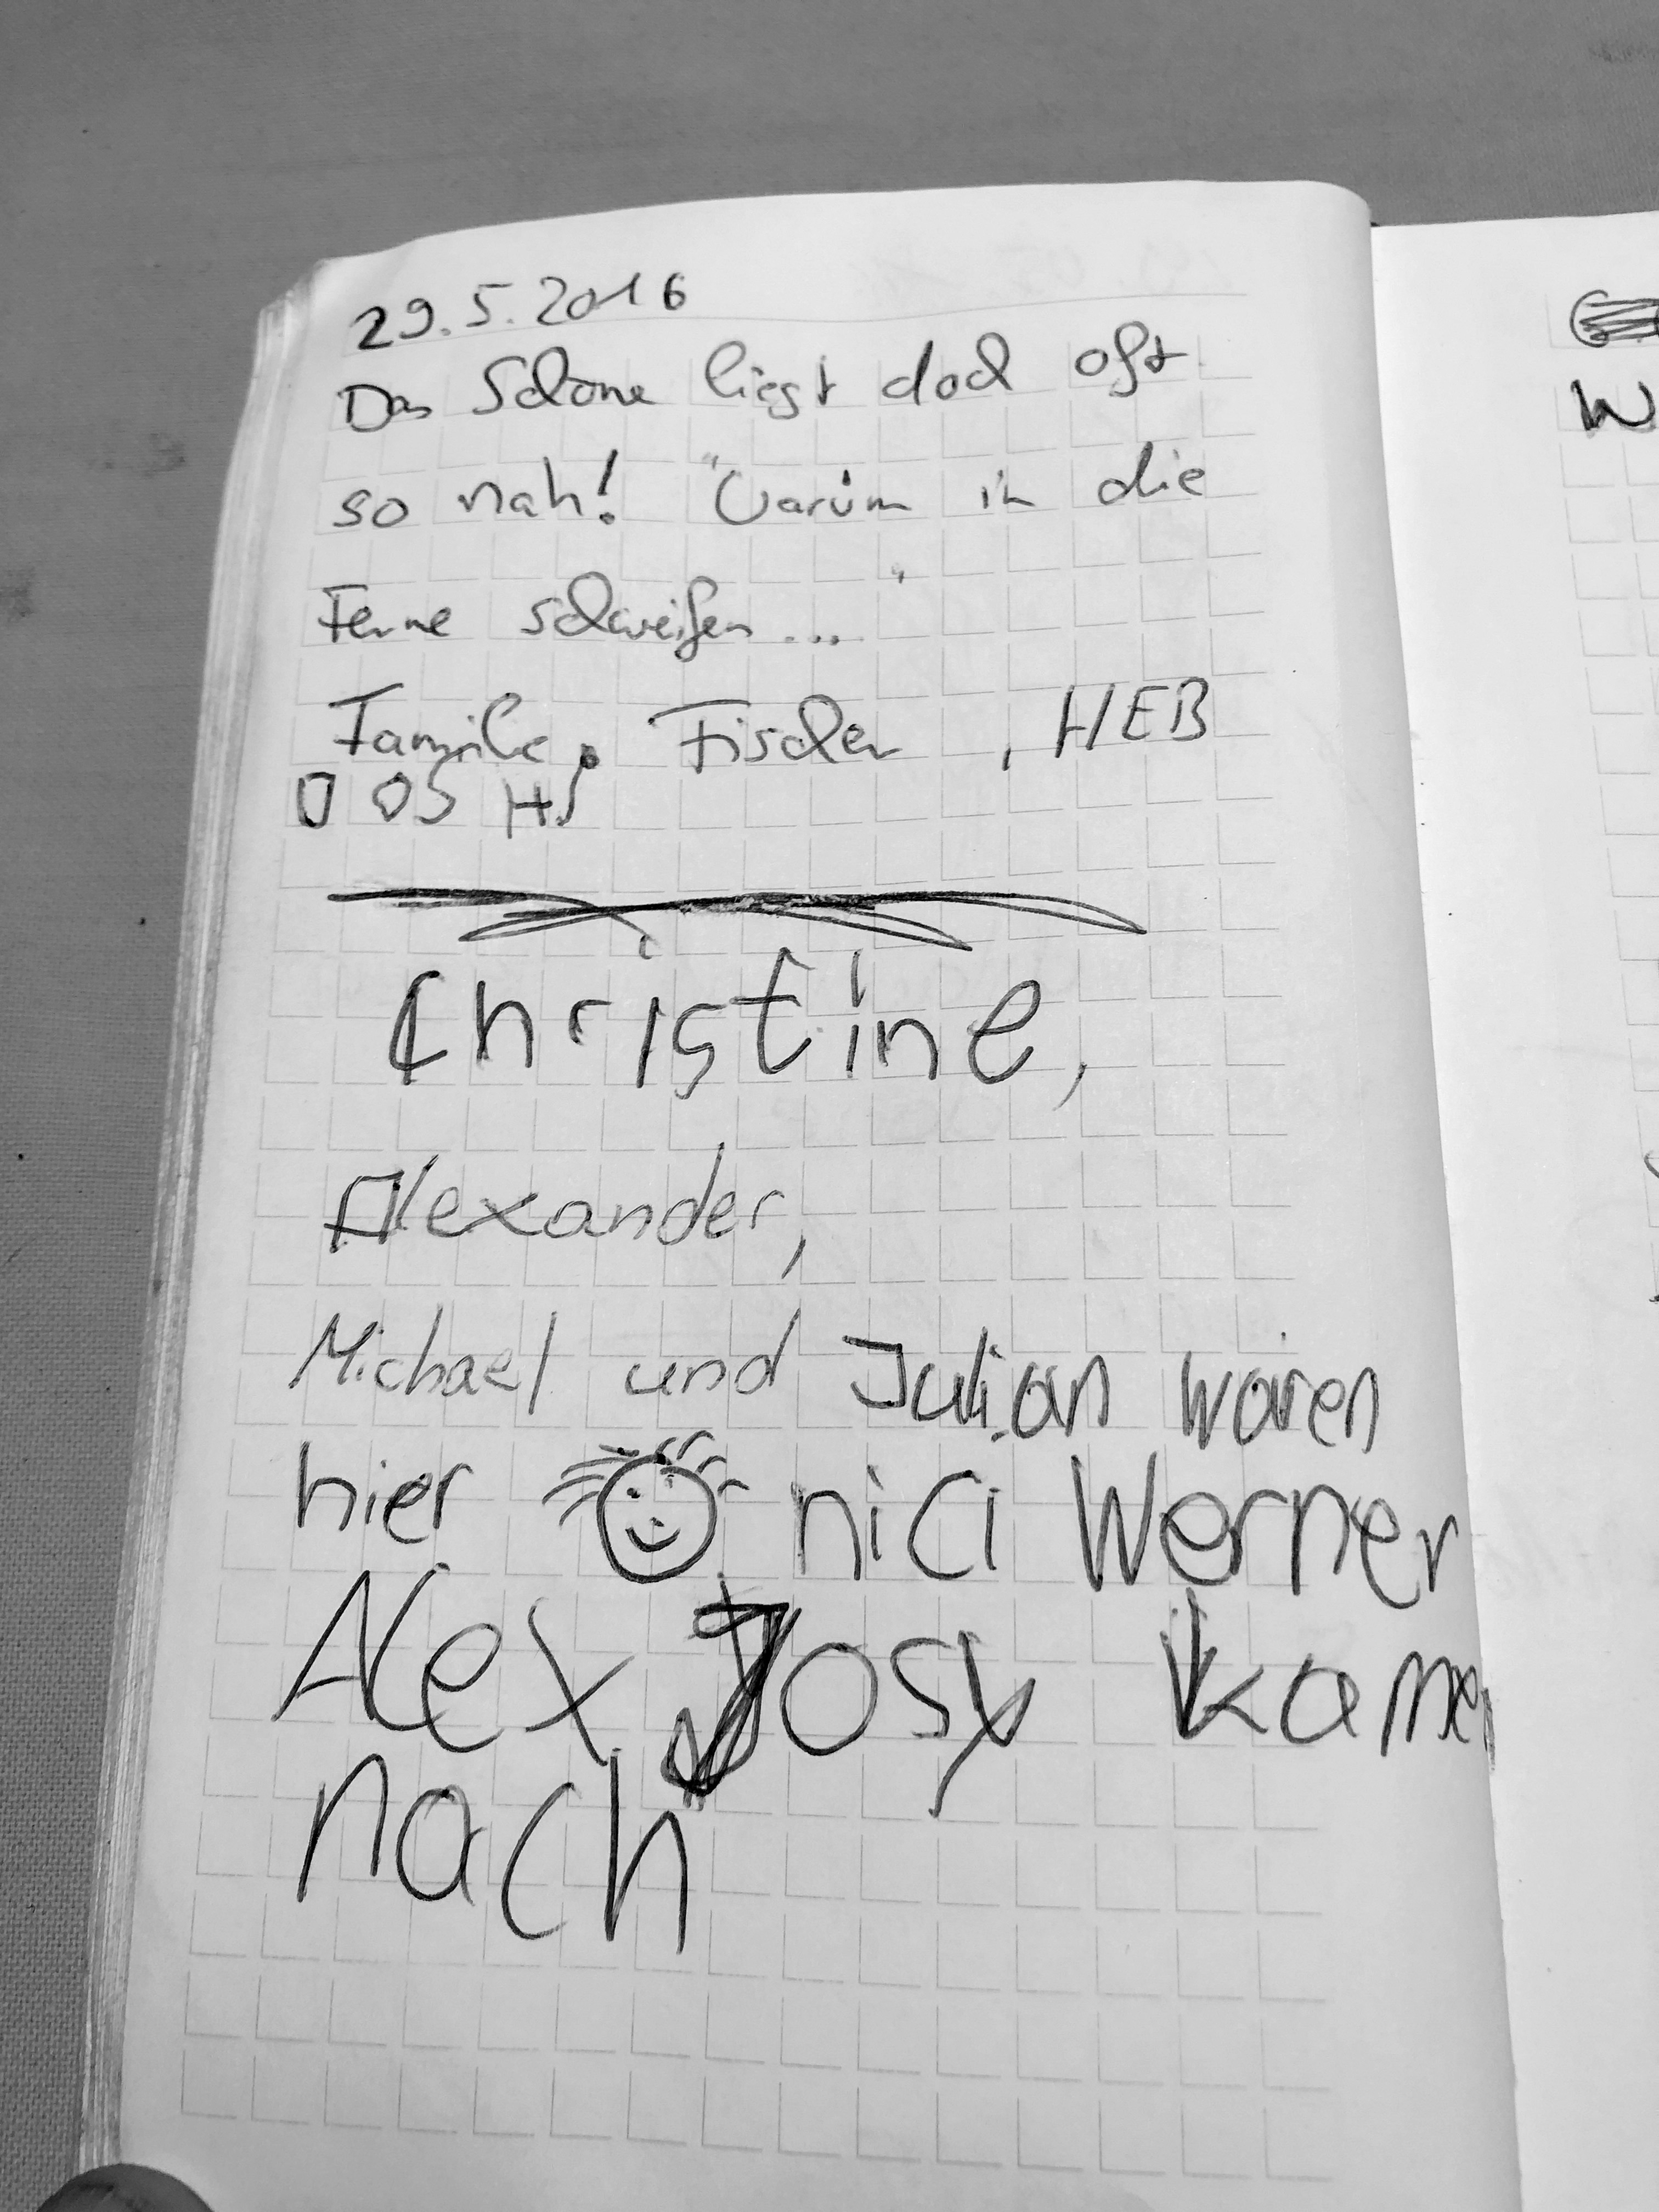 29.5.2016
Das Schöne liegt doch oft
so nah! "Warum in die
Ferne schweifen..."
Familie Fischer, HEB
Christine,
Alexander,
Michael und Julian waren
hier nici Werner
Alex Josy kamen
nach
W